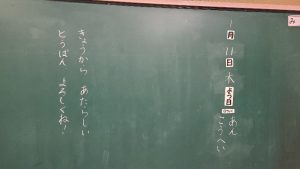 1月11日木よう日
あん
こうへい
きょうから あたらしい
とうばん よろしくね!
み